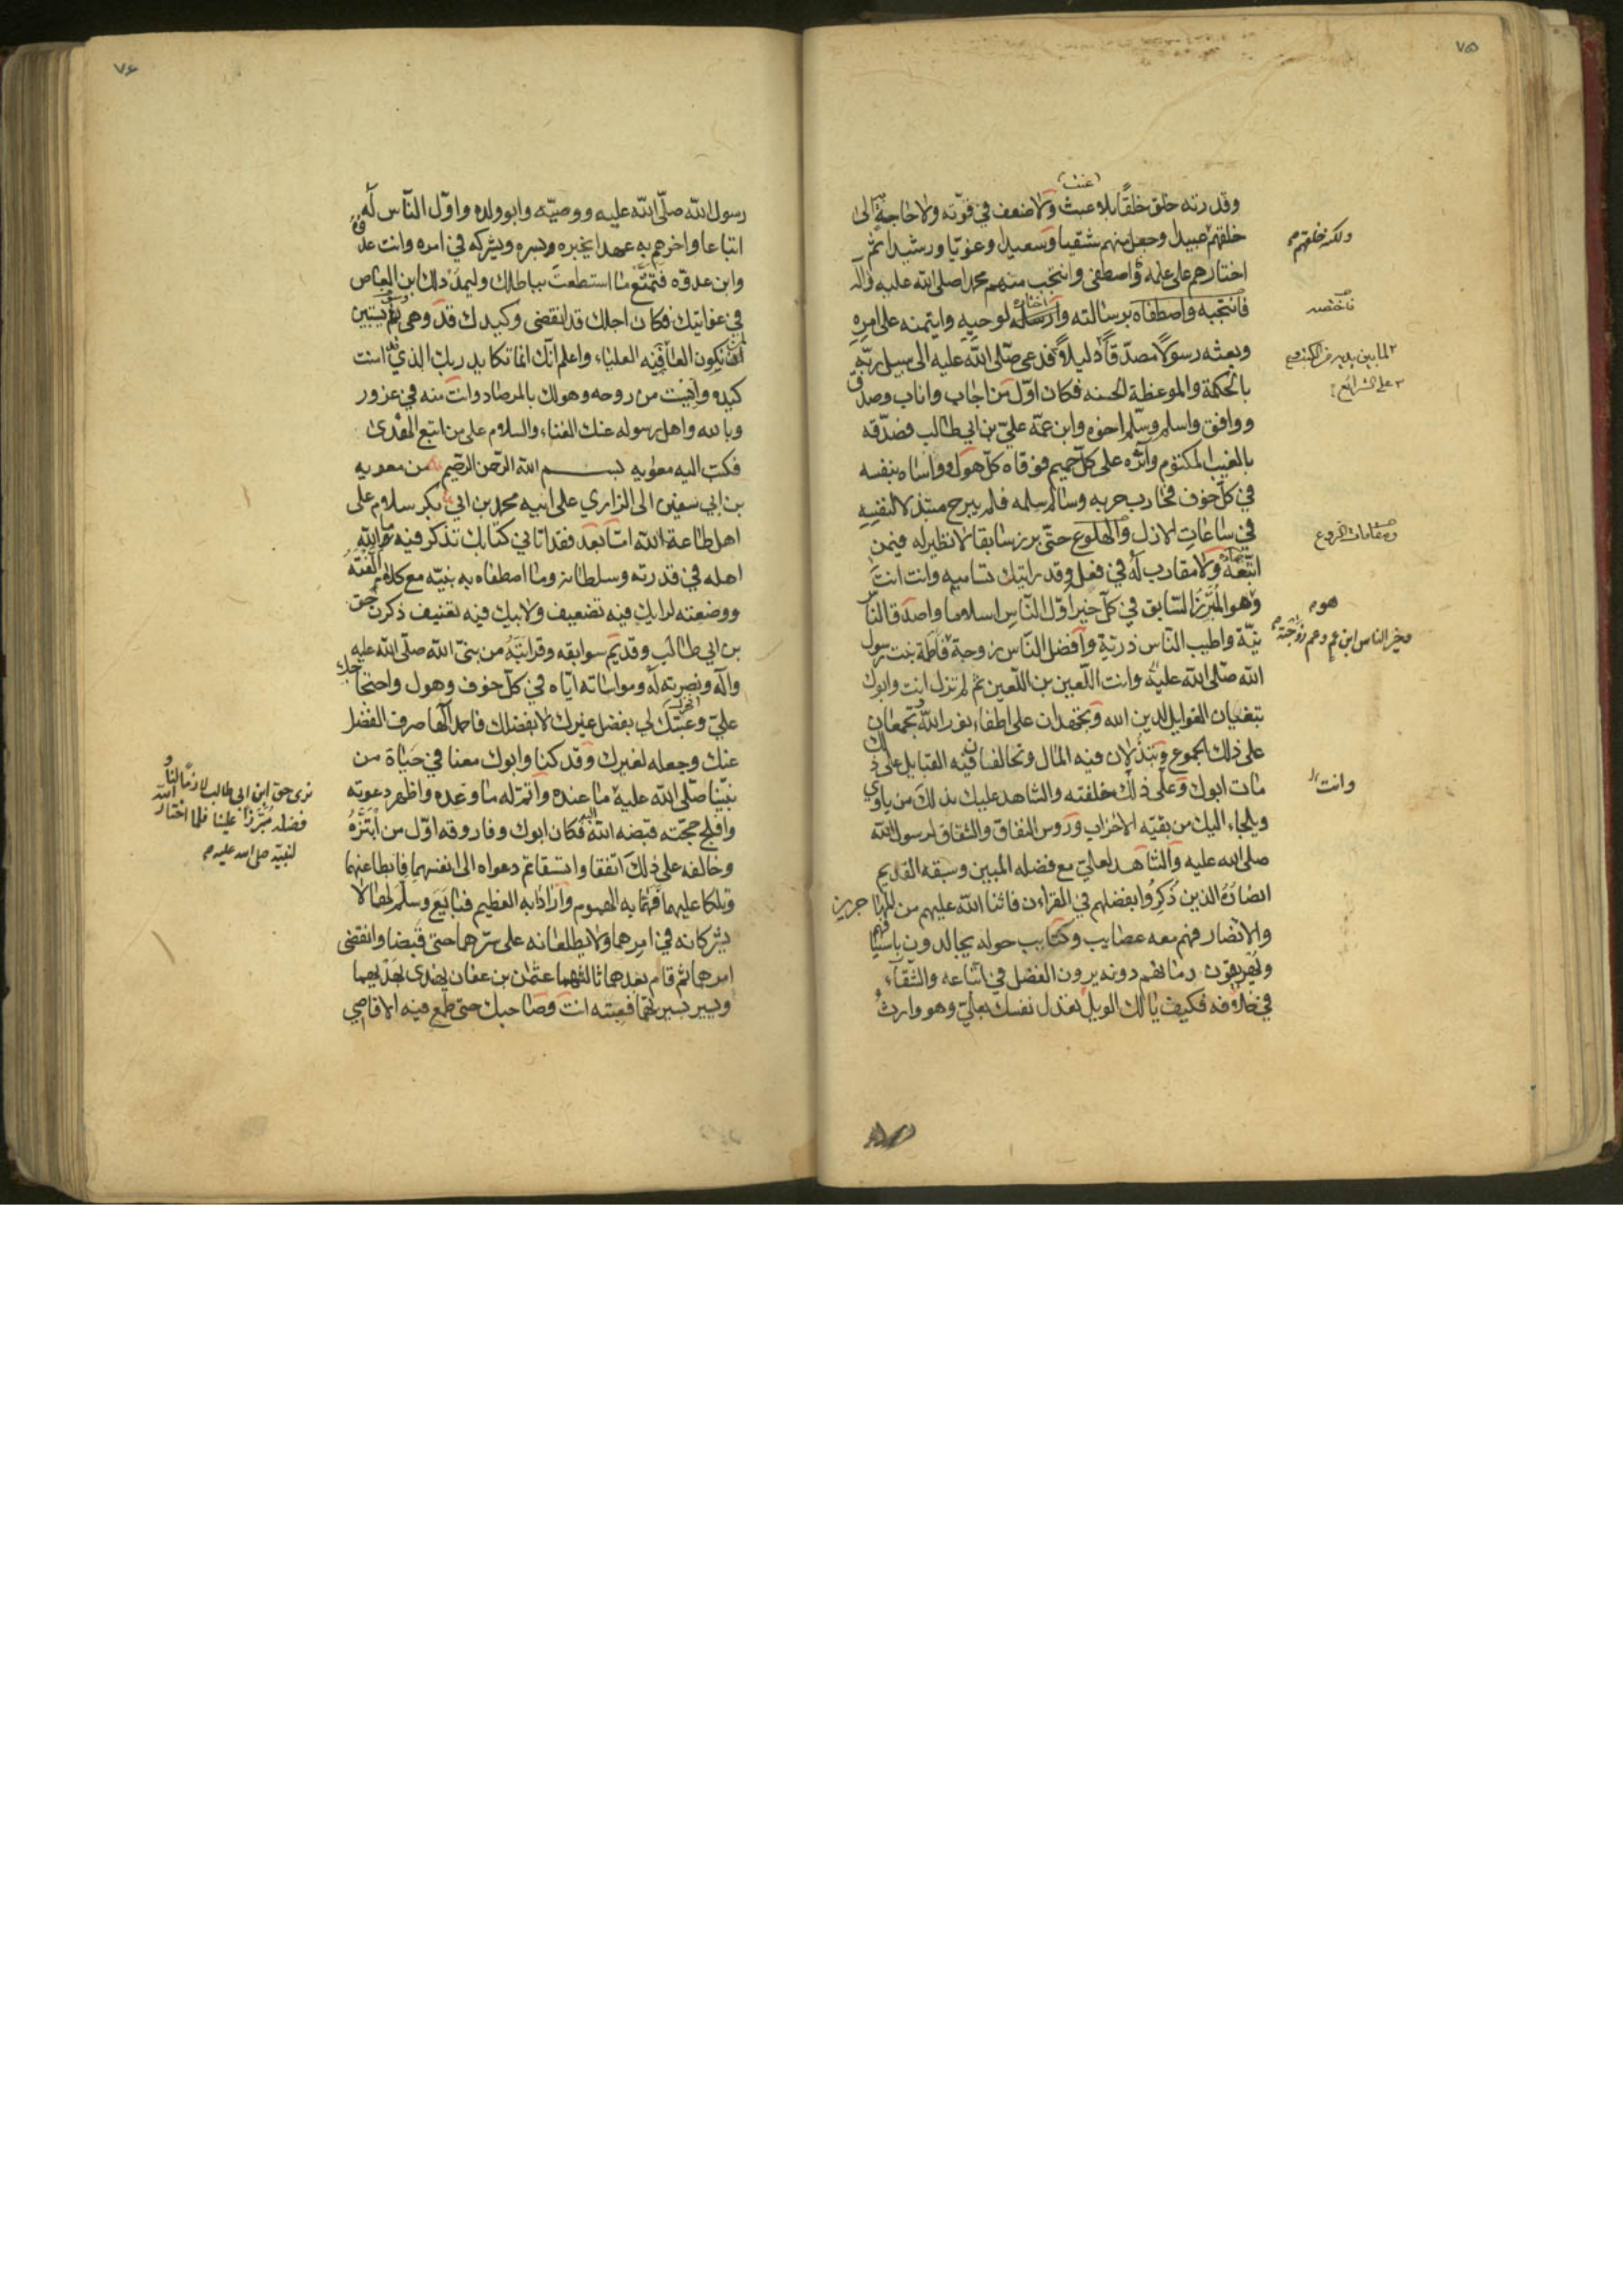 ٧٥
(عنت)
وقدرته خلق خلقًا بلا عبث ولا ضعف في قوّته ولا حاجةٍ الى
خلقهم عبيدا وجعل منهم شقيا وسعيدا وغويّا ورشيدا ثم
ولكنه خلقهم
اختارهم على علمه واصطفى وانتجب منهم محمدا صلى الله عليه واله
فانتجبه واصطفاه برسالته وارسله لوحيه وايتمنه على امره
فاختصه
وبعثه رسولًا مصدّقاً دليلاً فدعى صلّى الله عليه الى سبيل ربّه
لما بين يديه من الكتب
على الشرائع
بالحكمة والموعظة الحسنه فكان اوّل من اجاب واناب وصدق
ووافق واسلم وسلّم اخوه وابن عمّه عليّ بن ابي طالب فصدّقه
بالغيب المكتوم وآثره على كلّ حميم فوقاه كلّ هول وواساه بنفسه
في كلّ خوف فحارب حربه وسالم سلمه فلم يبرح مبتذلا لنفسه
في ساعات الازل والهلوع حتّى برز سابقا لا نظير له فيمن
ومقامات الروع
اتّبعه ولا مقارب له في فعله وقد رايتك تساميه وانت انت
وهو المبرّز السّابق في كلّ خير اوّل النّاس اسلاما واصدق النّاس
هو
نيّة واطيب النّاس ذريّة وافضل النّاس زوجة فاطمة بنت رسول
وخير الناس ابن عم وعم زوجته
الله صلّى الله عليه وانت اللّعين بن اللّعين ثم لم تزل انت وابوك
تبغيان الغوايل لدين الله وتجتهدان على اطفاء نور الله وتجمعان
على ذلك الجموع وتبذلان فيه المال وتحالفان فيه القبايل على ذلك
مات ابوك وعلى ذلك خلفته والشاهد عليك بذلك من ياوي
وانت
ويلجاء اليك من بقيّه الاحزاب وروس النفاق والشقاق لرسول الله
صلى الله عليه والشاهد لعليّ مع فضله المبين وسبقه القديم
انصاره الذين ذكروا بفضلهم في القران فاثنا الله عليهم من المهاجرين
والانصار فهم معه عصايب وكتايب حوله يجالدون باسيافهم
ويهريقون دماءهم دونه يرون الفضل في اتباعه والشقاء
في خلافه فكيف يا لك الويل تعدل نفسك بعليّ وهو وارث
٧۶
رسول الله صلّى الله عليه ووصيّه وابو ولده واوّل النّاس له
اتباعا واخرهم به عهدا يخبره بسره ويشركه في امره وانت عدوه
وابن عدوّه فتمتّع ما استطعت بباطلك وليمدد لك ابن العاص
في غوايتك فكان اجلك قد انقضى وكيدك قد وهى ثم يستبين
لمن تكون العاقبه العلياء واعلم انّك انما تكايد ربك الذي قد امنت
كيده وايست من روحه وهو لك بالمرصاد وانت منه في غرور
وبالله واهل رسوله عنك الغناء والسلام على من اتبع الهدى
فكتب اليه معويه بسم الله الرّحمن الرّحيم من معويه
بن ابي سفين الى الزاري على ابيه محمد بن ابي بكر سلام على
اهل طاعة الله امّا بعد فقد اتاني كتابك تذكر فيه ما الله
اهله في قدرته وسلطانه وما اصطفاه به نبيّه مع كلام الّفته
ووضعته لرايك فيه تضعيف ولابيك فيه تعنيف ذكرت حق
بن ابي طالب وقديم سوابقه وقرابته من نبيّ الله صلّى الله عليه
وآله ونصرته له ومواساته ايّاه في كلّ خوف وهول واحتجاجك
عليّ وعيبك لي بفضل غيرك لا بفضلك فاحمد الٓها صرف الفضل
عنك وجعله لغيرك وقد كنا وابوك معنا في حياة من
نبيّنا صلّى الله عليه ما عنده واتمّ له ما وعده واظهر دعوته
نرى حق ابن ابي طالب لازمًا لنا و
فضله مبرّزًا علينا فلما اختار الله
لنبيّه صلى الله عليه
وافلج حجّته قبضه الله اليه فكان ابوك وفاروقه اوّل من ابتزّه
وخالفه على ذلك اتفقا واتسقا ثم دعواه الى انفسهما فابطا عنهما
وتلكا عليهما فهمّا به الهموم وارادا به العظيم فبايع وسلّم لهما لا
يشركانه في امرهما ولا يطلعانه على سرّهما حتى قبضا وانقضى
امرهما ثم قام بعدهما ثالثهما عثمن بن عفان يهتدى بهديهما
ويسير بسيرتهما فعبته انت وصاحبك حتى طمع فيه الاقاصي